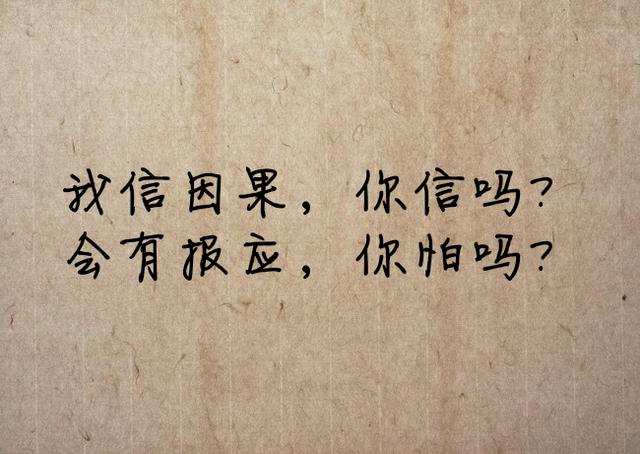 我信因果，你信吗？
会有报应，你怕吗？